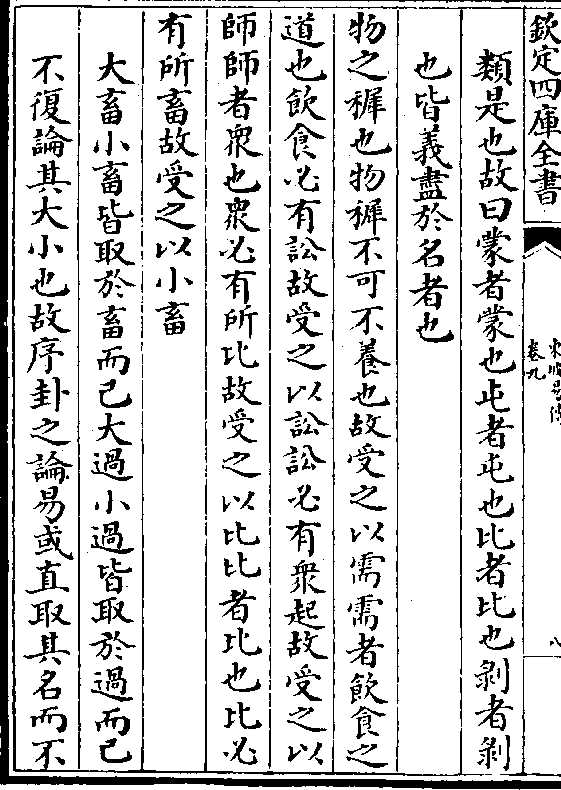 欽定四庫全書
東坡易傳
卷九
八
類是也故曰蒙者蒙也屯者屯也比者比也剝者剝
也皆義盡於名者也
物之穉也物穉不可不養也故受之以需需者飲食之
道也飲食必有訟故受之以訟訟必有衆起故受之以
師師者衆也衆必有所比故受之以比比者比也比必
有所畜故受之以小畜
大畜小畜皆取於畜而已大過小過皆取於過而已
不復論其大小也故序卦之論易或直取其名而不